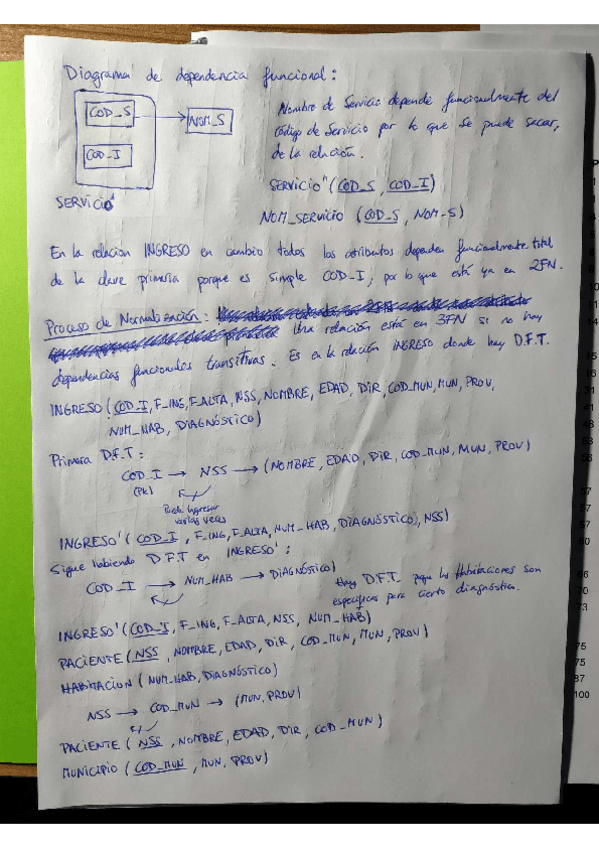 Diagrama de dependencia funcional:
COD_S
NOM_S
COD_I
SERVICIO'
Nombre de Servicio depende funcionalmente del
código de Servicio por lo que se puede sacar,
de la relación.
SERVICIO" (COD_S, COD_I)
NOM_SERVICIO (COD_S, NOM_S)
En la relación INGRESO en cambio todos los atributos dependen funcionalmente total
de la clave primaria porque es simple COD_I, por lo que está ya en 2FN.
Proceso de Normalización:
Una relación está en 3FN si no hay
dependencias funcionales transitivas. Es en la relación INGRESO donde hay D.F.T.
INGRESO (COD_I, F_ING, F_ALTA, NSS, NOMBRE, EDAD, DIR, COD_MUN, MUN, PROV,
NUM_HAB, DIAGNÓSTICO)
Primera D.F.T:
COD_I → NSS → (NOMBRE, EDAD, DIR, COD_MUN, MUN, PROV)
(PK)
Puede ingresar
varias veces
INGRESO' (COD_I, F_ING, F_ALTA, NUM_HAB, DIAGNÓSTICO, NSS)
Sigue habiendo D.F.T en INGRESO':
COD_I → NUM_HAB → DIAGNÓSTICO)
Hay D.F.T. las Habitaciones son
específicas para cierto diagnóstico.
INGRESO' (COD_I, F_ING, F_ALTA, NSS, NUM_HAB)
PACIENTE (NSS, NOMBRE, EDAD, DIR, COD_MUN, MUN, PROV)
HABITACION (NUM_HAB, DIAGNÓSTICO)
NSS → COD_MUN → (MUN, PROV)
PACIENTE (NSS, NOMBRE, EDAD, DIR, COD_MUN)
MUNICIPIO (COD_MUN, MUN, PROV)